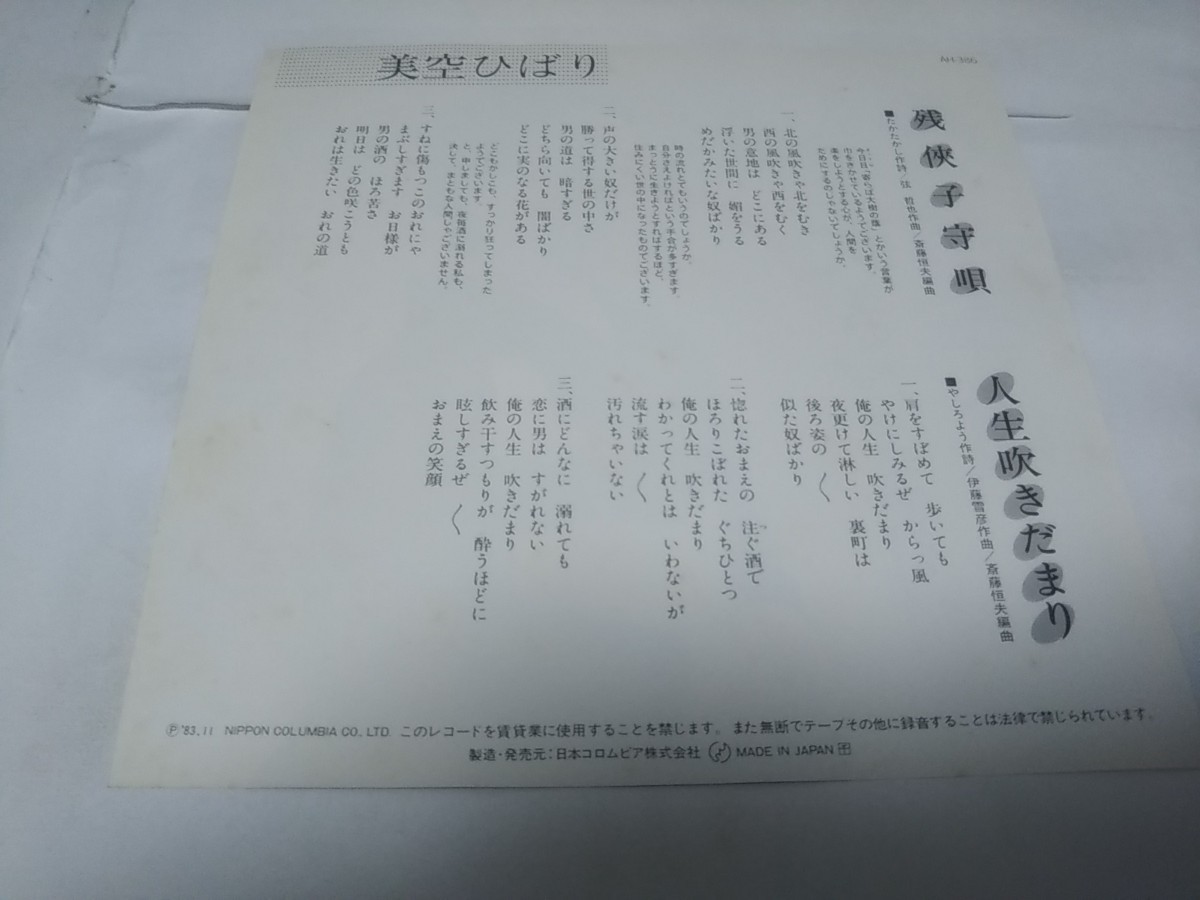 美空ひばり
残侠子守唄
■たかたかし作詩/弦 哲也作曲/斎藤恒夫編曲
今日日、"寄らば大樹の蔭"とかいう言葉が
巾をきかせているようでございます。
楽をしようとする心が、人間を
だめにするのじゃないでしょうか。
一、北の風吹きゃ北をむき
西の風吹きゃ西をむく
男の意地は どこにある
浮いた世間に 媚をうる
めだかみたいな奴ばかり
時の流れとでもいうのでしょうか、
自分さえよければという手合が多すぎます。
まっとうに生きようとすればするほど、
住みにくい世の中になったものでございます。
二、声の大きい奴だけが
勝って得する世の中さ
男の道は 暗すぎる
どちら向いても 闇ばかり
どこに実のなる花がある
どこもかしこも、すっかり狂ってしまった
ようでございます。
と、申しましても、夜毎酒に溺れる私も、
決して、まともな人間じゃございません。
三、すねに傷もつこのおれにゃ
まぶしすぎます お日様が
男の酒の ほろ苦さ
明日は どの色咲こうとも
おれは生きたい おれの道
人生吹きだまり
■やしろよう作詩/伊藤雪彦作曲/斎藤恒夫編曲
一、肩をすぼめて 歩いても
やけにしみるぜ からっ風
俺の人生 吹きだまり
夜更けて淋しい 裏町は
後ろ姿の 〱
似た奴ばかり
二、惚れたおまえの 注ぐ酒で
ほろりこぼれた ぐちひとつ
俺の人生 吹きだまり
わかってくれとは いわないが
流す涙は 〱
汚れちゃいない
三、酒にどんなに 溺れても
恋に男は すがれない
俺の人生 吹きだまり
飲み干すつもりが 酔うほどに
眩しすぎるぜ 〱
おまえの笑顔
Ⓟ'83.11 NIPPON COLUMBIA CO., LTD. このレコードを賃貸業に使用することを禁じます。また無断でテープその他に録音することは法律で禁じられています。
製造・発売元:日本コロムビア株式会社 MADE IN JAPAN